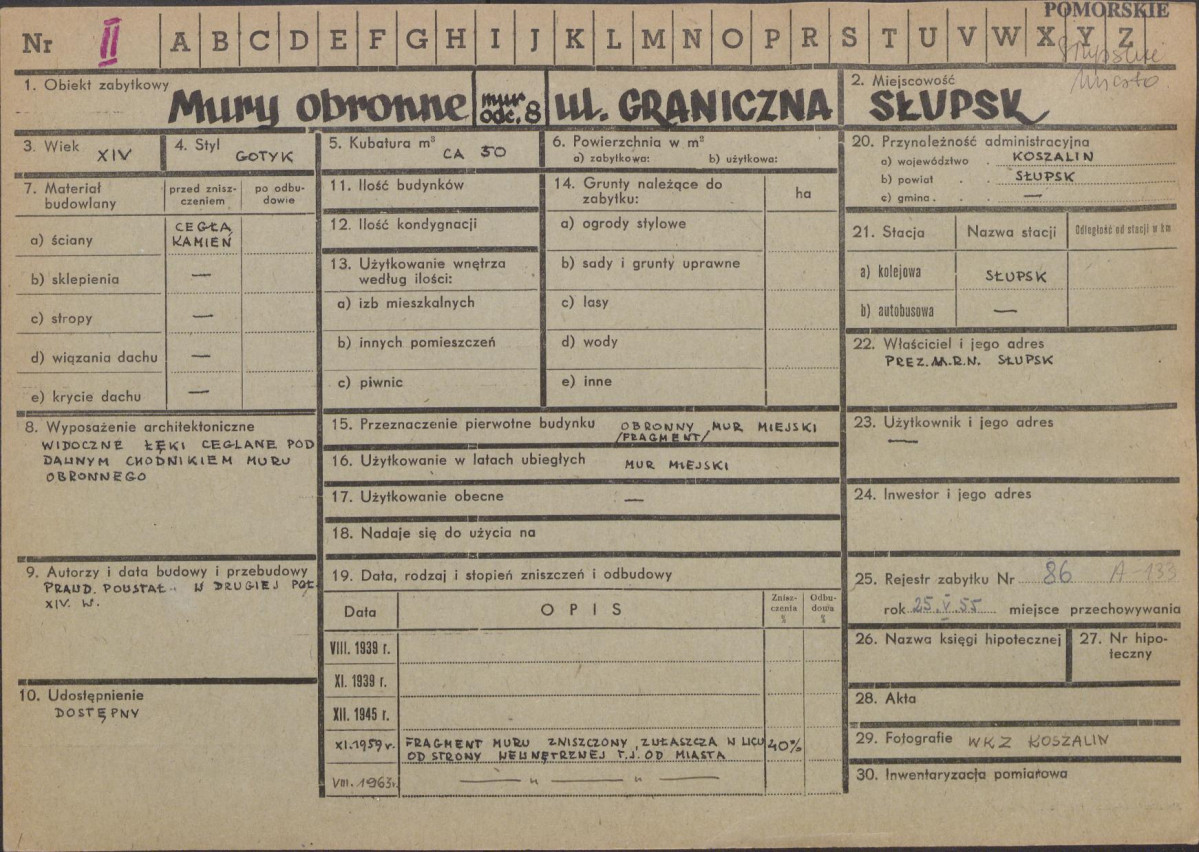 POMORSKIE
Nr II A B C D E F G H I J K L M N O P R S T U V W X Y Z
Słupskie
Miasto
1. Obiekt zabytkowy
Mury obronne mur odc. 8 ul. GRANICZNA
2. Miejscowość
SŁUPSK
3. Wiek XIV
4. Styl GOTYK
5. Kubatura m³ CA 50
6. Powierzchnia w m²
a) zabytkowa: b) użytkowa:
7. Materiał budowlany
przed zniszczeniem
po odbudowie
a) ściany CEGŁA, KAMIEŃ
b) sklepienia —
c) stropy —
d) wiązania dachu —
e) krycie dachu —
8. Wyposażenie architektoniczne
WIDOCZNE ŁĘKI CEGLANE POD
DAWNYM CHODNIKIEM MURU
OBRONNEGO
9. Autorzy i data budowy i przebudowy
PRAWD. POWSTAŁ W DRUGIEJ POŁ.
XIV. W.
10. Udostępnienie
DOSTĘPNY
11. Ilość budynków
12. Ilość kondygnacji
13. Użytkowanie wnętrza
według ilości:
a) izb mieszkalnych
b) innych pomieszczeń
c) piwnic
14. Grunty należące do
zabytku:
ha
a) ogrody stylowe
b) sady i grunty uprawne
c) lasy
d) wody
e) inne
15. Przeznaczenie pierwotne budynku OBRONNY MUR MIEJSKI
/FRAGMENT/
16. Użytkowanie w latach ubiegłych MUR MIEJSKI
17. Użytkowanie obecne —
18. Nadaje się do użycia na
19. Data, rodzaj i stopień zniszczeń i odbudowy
Data OPIS Zniszczenia % Odbudowia %
VIII. 1939 r.
XI. 1939 r.
XII. 1945 r.
XI.1959 r. FRAGMENT MURU ZNISZCZONY, ZWŁASZCZA W LICU 40%
OD STRONY WEWNĘTRZNEJ T.J. OD MIASTA
VIII. 1963 r. — „ — „ —
20. Przynależność administracyjna
a) województwo . KOSZALIN
b) powiat . . SŁUPSK
c) gmina . . —
21. Stacja Nazwa stacji Odległość od stacji w km
a) kolejowa SŁUPSK
b) autobusowa —
22. Właściciel i jego adres
PREZ. M.R.N. SŁUPSK
23. Użytkownik i jego adres
—
24. Inwestor i jego adres
25. Rejestr zabytku Nr 86 A-133
rok 25.V.55 miejsce przechowywania
26. Nazwa księgi hipotecznej
27. Nr hipoteczny
28. Akta
29. Fotografie WKZ KOSZALIN
30. Inwentaryzacja pomiarowa